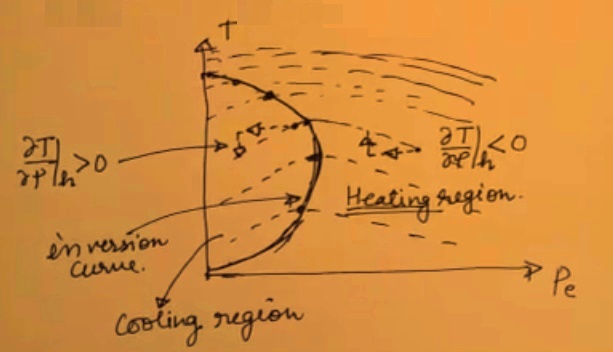 T
∂T/∂P|h > 0
∂T/∂P|h < 0
Heating region.
inversion
curve.
Cooling region
Pe